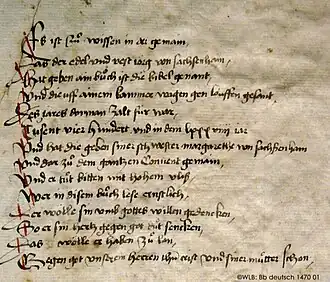 Es ist zů wissen in der gemain
Das der edel und vest iorg von Sachsenhain
Hat geben ain bůch ist die bibel genant
Und die uff ainem kamm wagen gen lauffen gesant
Des jares do man zalt für war
Tusent vier hundert und in dem lxxviii iar
Und hat die geben siner schwester margrethe von Sachsenhain
Und dar zů dem gantzen Convent gemain
Und er tůt bitten mit hohem vliß
Wer in disem bůch lese ernstlich
Der wölle sin umb gottes willen gedencken
So er sin hertz gegen got tůt sencken
Das wölle er haben zů lon
Gegen got unserem herren ihu crist und siner můtter schon
©WLB: Bb deutsch 1470 01